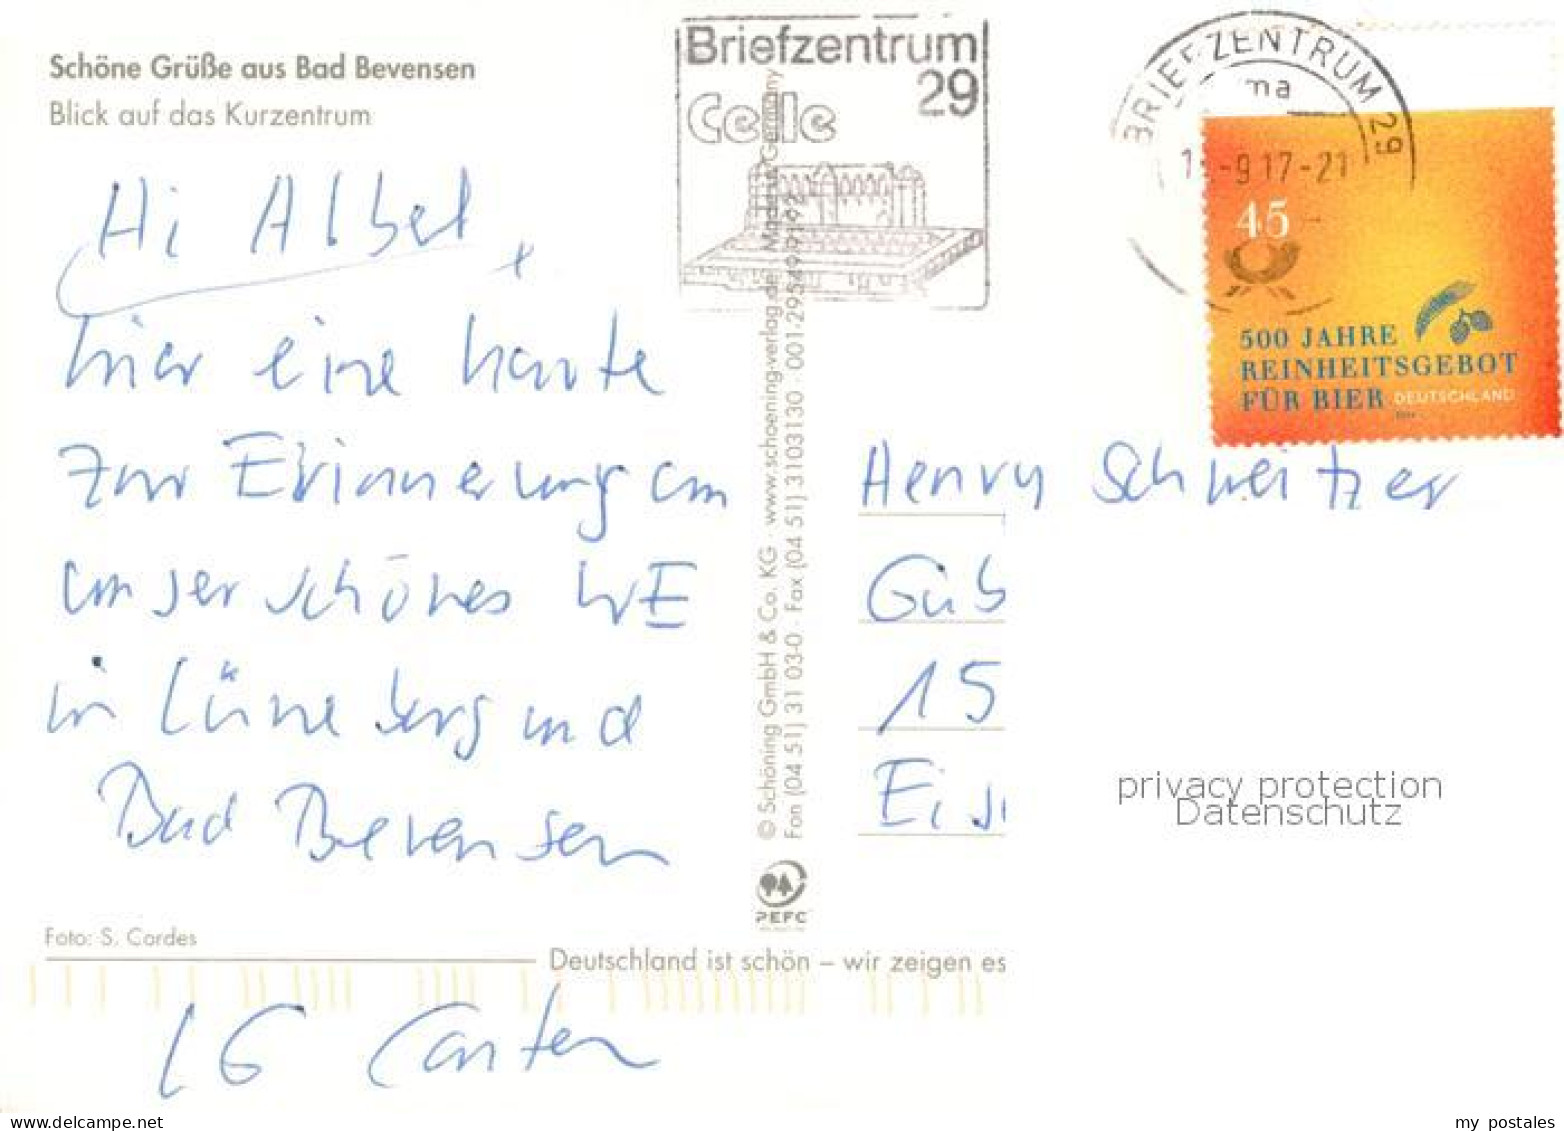 Schöne Grüße aus Bad Bevensen
Blick auf das Kurzentrum
Hi Albel,
hier eine Karte
zur Erinnerung an
unser schönes WE
in Lüneburg und
Bad Bevensen
Foto: S. Cordes
Deutschland ist schön – wir zeigen es
LG Carsten
Briefzentrum
29
Celle
© Schöning GmbH & Co. KG · www.schoening-verlag.de Made in Germany
Fon (04 51) 31 03-0 · Fax (04 51) 3103130 · 001-29549-9192
PEFC
BRIEFZENTRUM 29
ma
-9 17-21
45
500 JAHRE
REINHEITSGEBOT
FÜR BIER DEUTSCHLAND
Henry Schweitzer
Gub
15
Eis
privacy protection
Datenschutz
www.delcampe.net
my postales